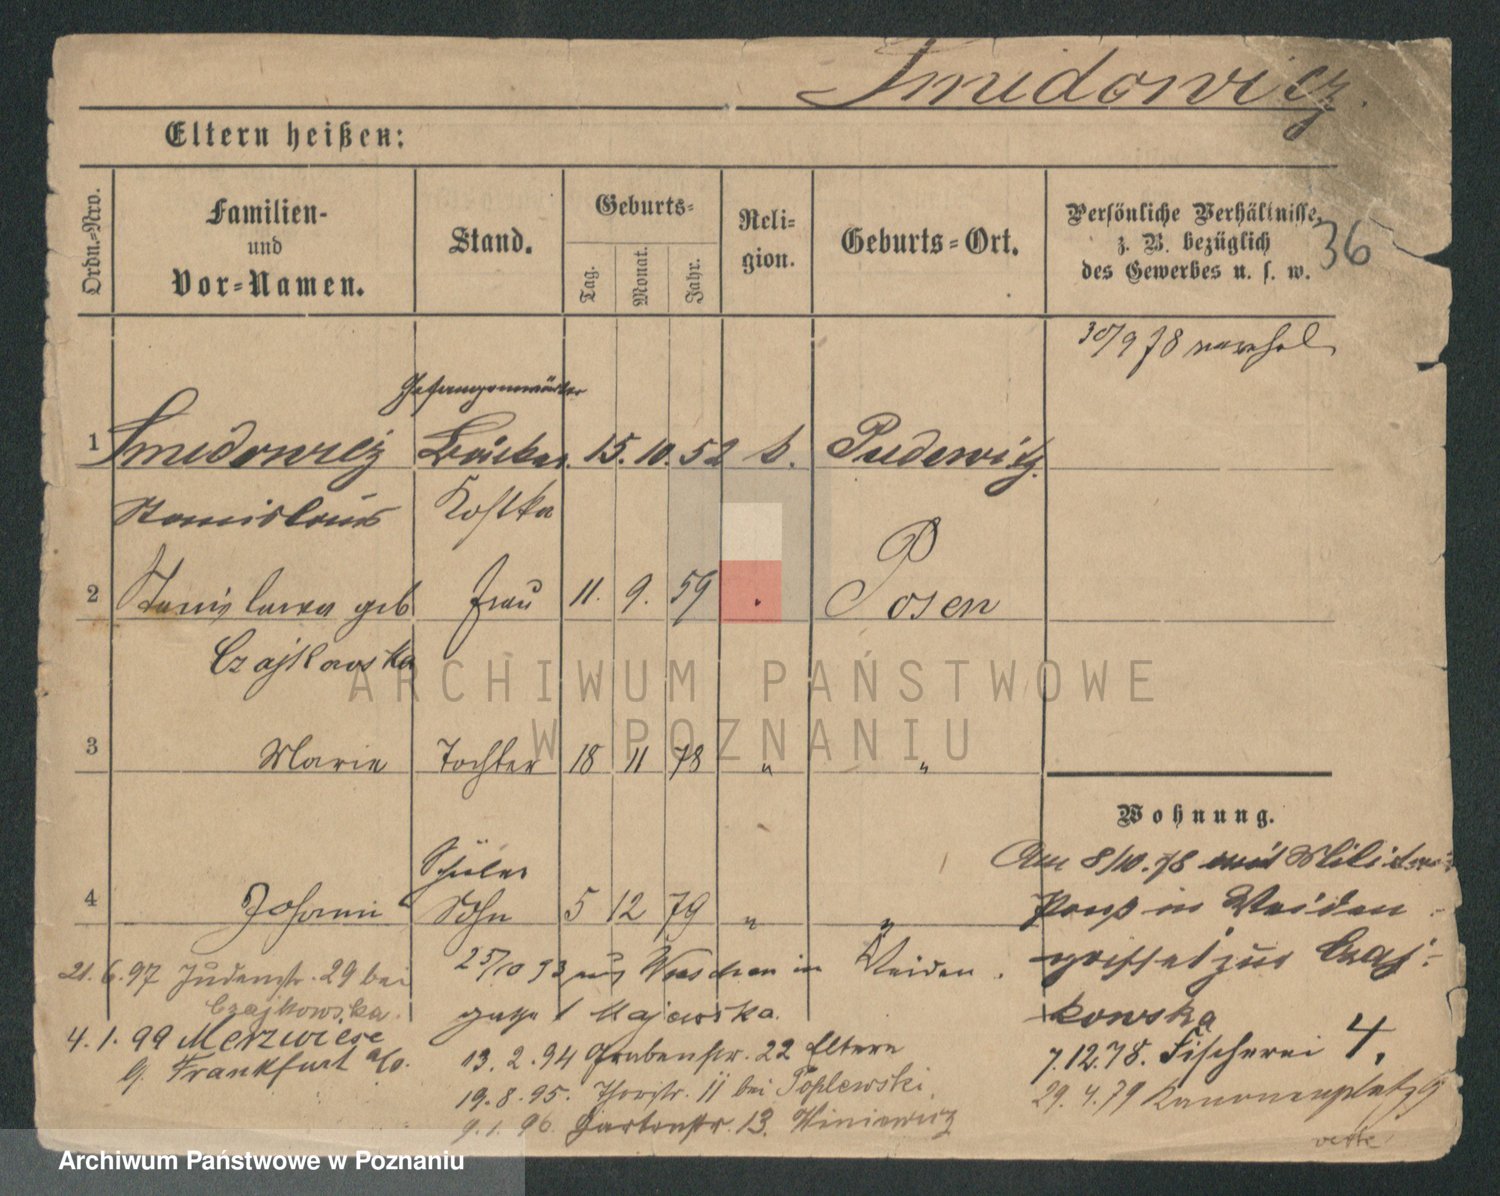 Smidowicz.
Eltern heißen:
Ordn.-Nro.
Familien-
und
Vor-Namen.
Stand.
Geburts-
Tag.
Monat.
Jahr.
Reli-
gion.
Geburts-Ort.
Persönliche Verhältnisse,
z. B. bezüglich
des Gewerbes u. s. w.
36
30/9 78
Gefangenwärter
1 Smidowicz 15. 10. 52 k. Pudewitz.
Stanislaus Kostka
2 Stanislawa geb Frau 11. 9. 59 Posen
Czajkowska
3 Marie Tochter 18 11 78 " "
Wohnung.
Schüler
4 Johann Sohn 5 12 79 " "
Am 8/10. 78 mit Militär
Pass in
zur Czaj-
kowska
7.12.78. Fischerei 4.
29. 4. 79 Kanonenplatz 9
verte
21. 6. 97 Judenstr. 29 bei
Czajkowska.
4. 1. 99 Merzwiese
9. Frankfurt a/O.
25/10 93 aus Wreschen in
Majewska.
13. 2. 94 Grabenstr. 22 Eltern
19. 8. 95. Thorstr. 11 bei
9. 1. 96. Gartenstr. 13.
ARCHIWUM PAŃSTWOWE
W POZNANIU
Archiwum Państwowe w Poznaniu